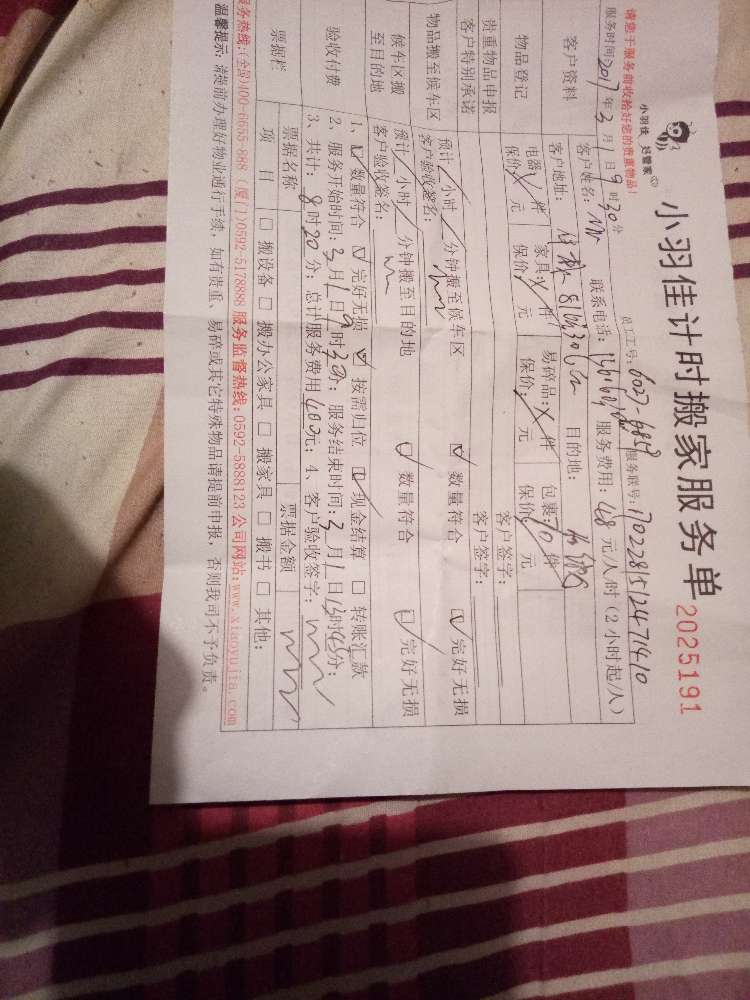 请您于服务前收拾好您的贵重物品!
小羽佳 好管家
小羽佳计时搬家服务单
2025191
员工工号: 6027-6858 服务联号: 170228151247 1410
服务时间 2017 年 3 月 1 日 9 时 30 分
客户资料
客户姓名: 联系电话: 服务费用: 48 元/人/时(2小时起/人)
客户地址: 目的地:
物品登记
电器 件 家具: 件 易碎品: 件 包裹: 10 件
保价 元 保价: 元 保价: 元 保价: 元
贵重物品申报
客户签字:
客户特别承诺
客户签字:
物品搬至候车区
预计 小时 分钟搬至候车区 ☑ 数量符合 ☑ 完好无损
客户验收签名:
候车区搬至目的地
预计 小时 分钟搬至目的地 ☑ 数量符合 ☑ 完好无损
客户验收签名:
验收付费
1、☑ 数量符合 ☑ 完好无损 ☑ 按需归位 ☑ 现金结算 □ 转账汇款
2、服务开始时间: 3 月 1 日 9 时 30 分; 服务结束时间: 3 月 1 日 13 时 45 分;
3、共计: 8 时 20 分; 总计服务费用 400 元; 4、客户验收签字:
票据栏
票据名称 票据金额
项目 □ 搬设备 □ 搬办公家具 □ 搬家具 □ 搬书 □ 其他:
服务热线:(全国)400-6655-888 (厦门)0592-5178888 服务监督热线: 0592-5888123 公司网站: www.xiaoyujia.com
温馨提示: 请提前办理好物业通行手续, 如有贵重、易碎或其它特殊物品请提前申报, 否则我司不予负责。